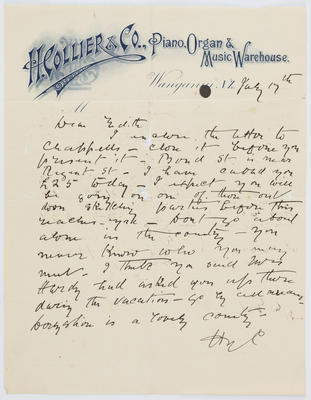 H. COLLIER & CO.,
Piano, Organ &
Music Warehouse.
Wanganui, N.Z. July 17th
Dear Edith
I enclose the letter to
Chappells - close it before you
present it - Bond St is near
Regent St - I have cabled you
£25 today - I expect you will
be going on one of those out
door sketching parties before this
reaches you - Don't go about
alone in the country - you
never know who you may
meet - I think you said Miss
Hardy had asked you up there
during the vacation - go by all means
Derbyshire is a lovely county
Hy C